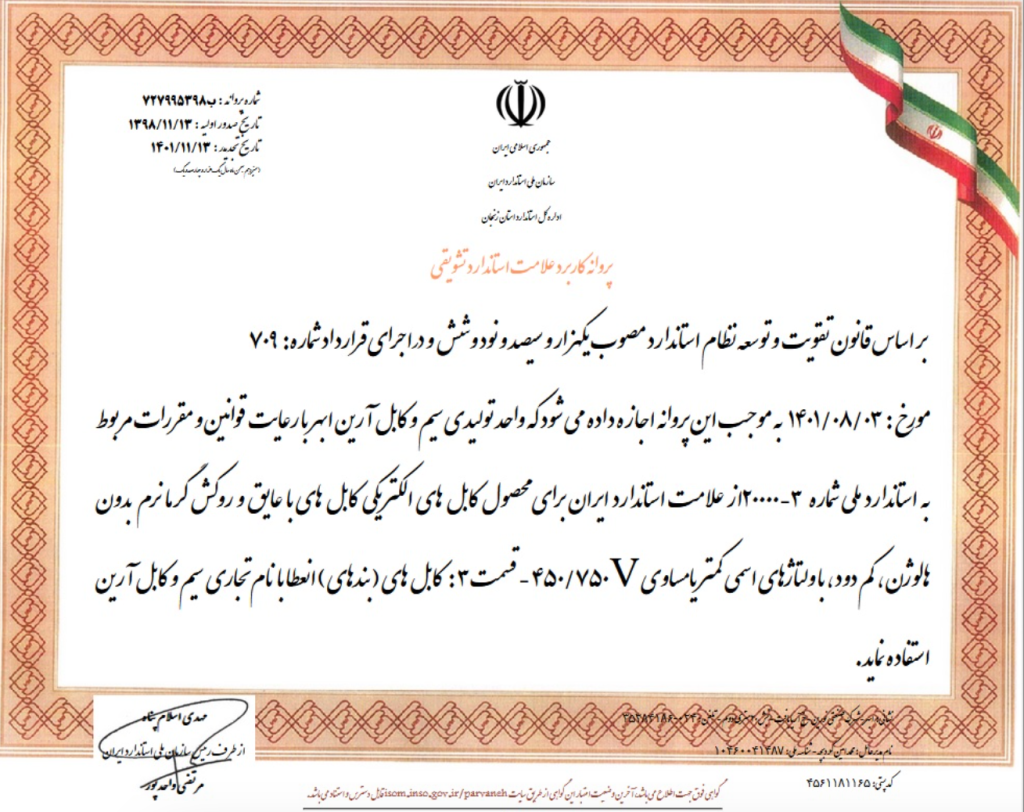 شماره پروانه : ب۷۲۷۹۹۵۳۹۸
تاریخ صدور اولیه : ۱۳۹۸/۱۱/۱۳
تاریخ تمدید : ۱۴۰۱/۱۱/۱۳
جمهوری اسلامی ایران
سازمان ملی استاندارد ایران
اداره کل استاندارد استان زنجان
پروانه کاربرد علامت استاندارد تشویقی
بر اساس قانون تقویت و توسعه نظام استاندارد مصوب یکهزار و سیصد و نود و شش و در اجرای قرارداد شماره : ۷۰۹
مورخ : ۱۴۰۱/۰۸/۰۳ به موجب این پروانه اجازه داده می شود که واحد تولیدی سیم و کابل آرین ابهر با رعایت قوانین و مقررات مربوط
به استاندارد ملی شماره ۳-۲۰۰۰۰ از علامت استاندارد ایران برای محصول کابل های الکتریکی کابل های با عایق و روکش گرمانرم بدون
هالوژن، کم دود، با ولتاژهای اسمی کمتر یا مساوی ۴۵۰/۷۵۰ V - قسمت ۳ : کابل های (بندهای) انعطا با نام تجاری سیم و کابل آرین
استفاده نماید.
مهدی اسلام پناه
از طرف رئیس سازمان ملی استاندارد ایران
مرتضی واحدپور
نام مدیرعامل : - شناسه ملی : ۱۰۴۶۰۰۴۱۴۸۷
کد پستی : ۴۵۶۱۱۸۱۱۶۵
گواهی فوق جهت اطلاع می باشد، آخرین وضعیت اعتبار این گواهی از طریق سایت isom.inso.gov.ir/parvaneh قابل دسترس و استناد می باشد.